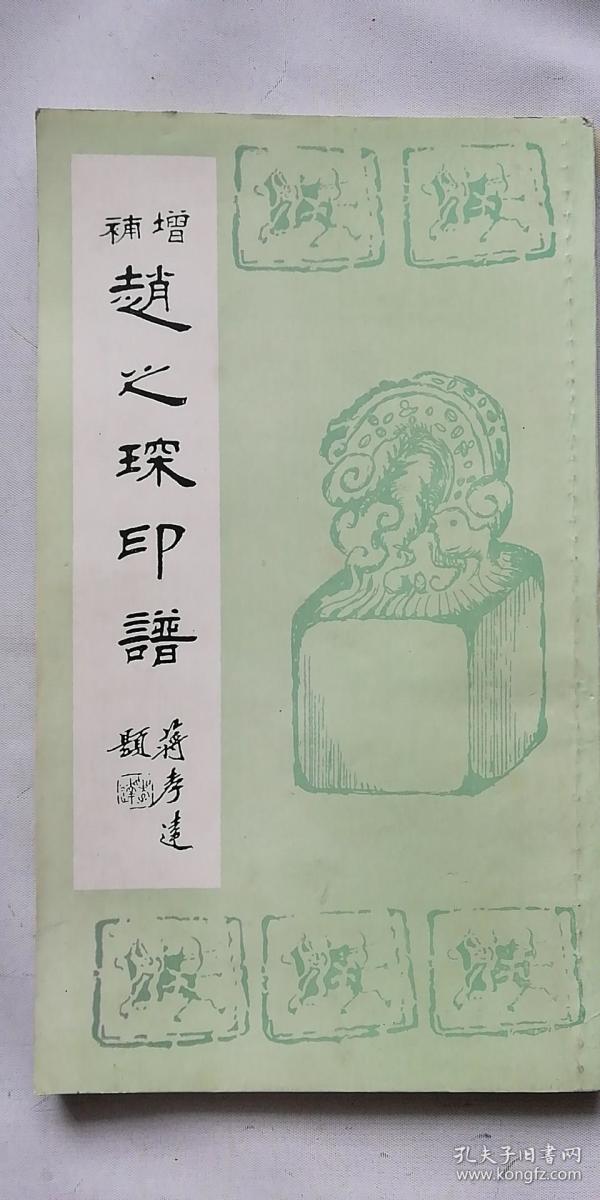 增補
趙之琛印譜
蔣孝達
題
孔夫子旧书网
www.kongfz.com